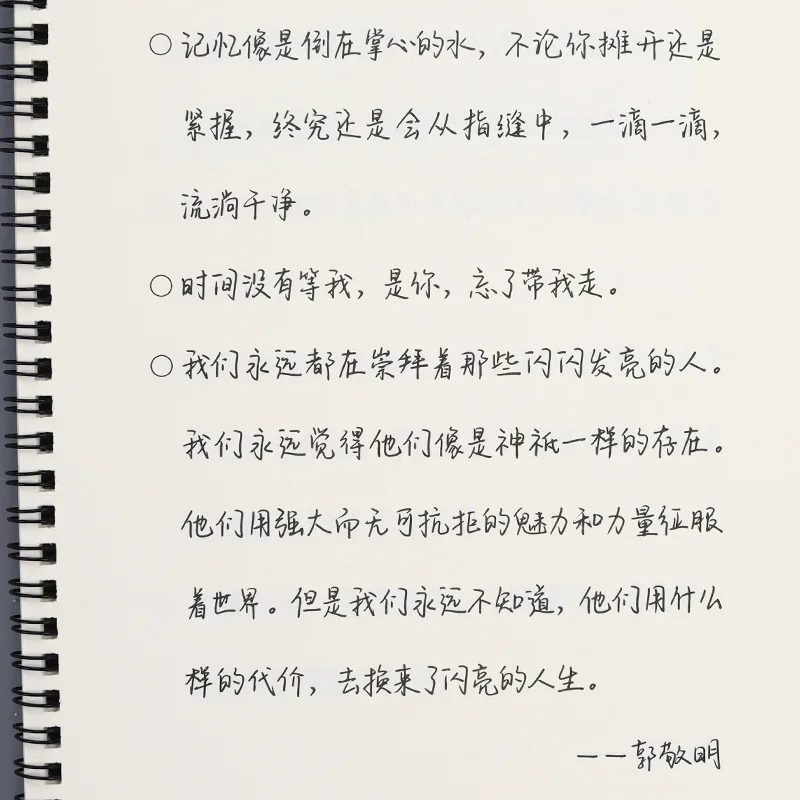 ○记忆像是倒在掌心的水，不论你摊开还是
紧握，终究还是会从指缝中，一滴一滴，
流淌干净。
○时间没有等我，是你，忘了带我走。
○我们永远都在崇拜着那些闪闪发亮的人。
我们永远觉得他们像是神祇一样的存在。
他们用强大而无可抗拒的魅力和力量征服
着世界。但是我们永远不知道，他们用什么
样的代价，去换来了闪亮的人生。
——郭敬明